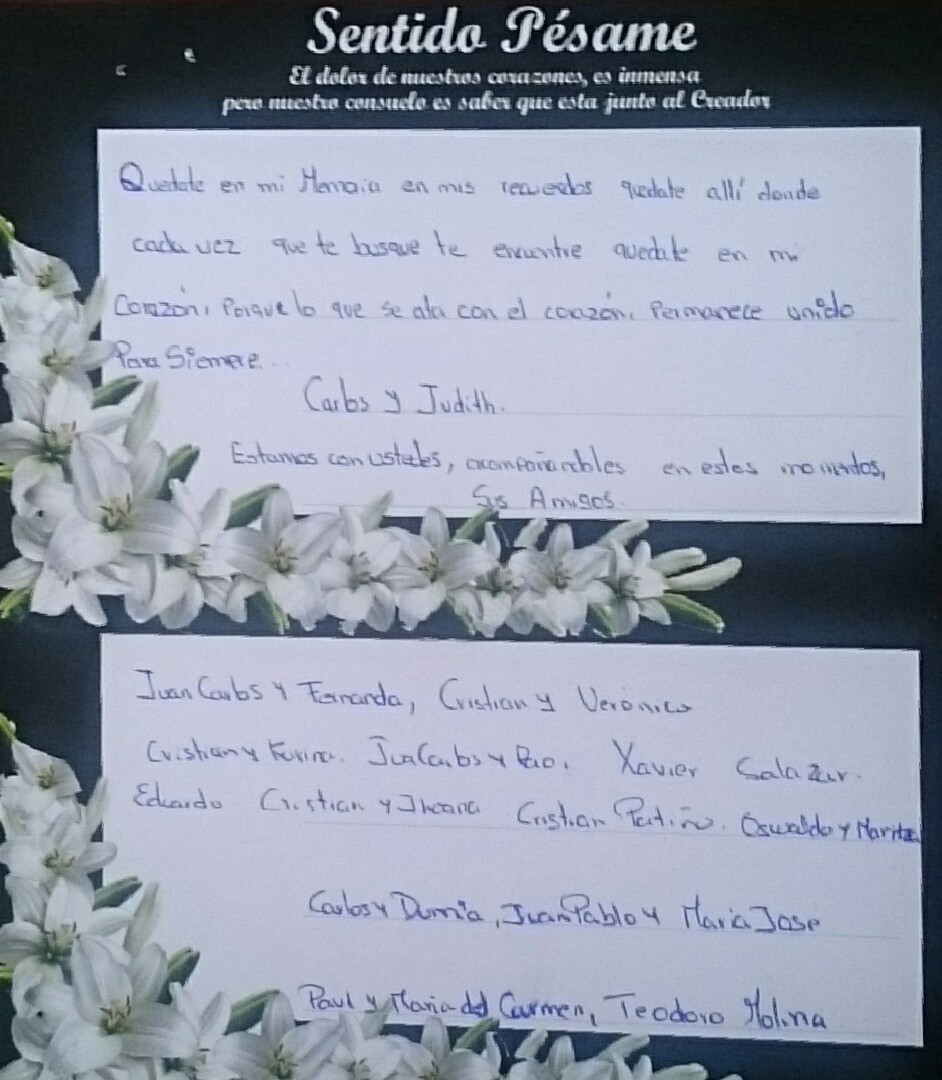 Sentido Pésame
El dolor de nuestros corazones, es inmensa
pero nuestro consuelo es saber que esta junto al Creador
Quedate en mi Memoria en mis recuerdos quedate allí donde
cada vez que te busque te encuentre quedate en mi
Corazón, Porque lo que se ata con el corazón, Permanece unido
Para Siempre.
Carlos y Judith.
Estamos con ustedes, acompañandoles en estos momentos,
Sus Amigos.
Juan Carlos y Fernanda, Cristian y Verónica
Cristian y Karina. Jua Carlos y Pao. Xavier Salazar.
Eduardo Cristian y Ileana Cristian Patiño. Oswaldo y Maritza
Carlos y Dunnia, Juan Pablo y Maria Jose
Paul y Maria del Carmen, Teodoro Molina